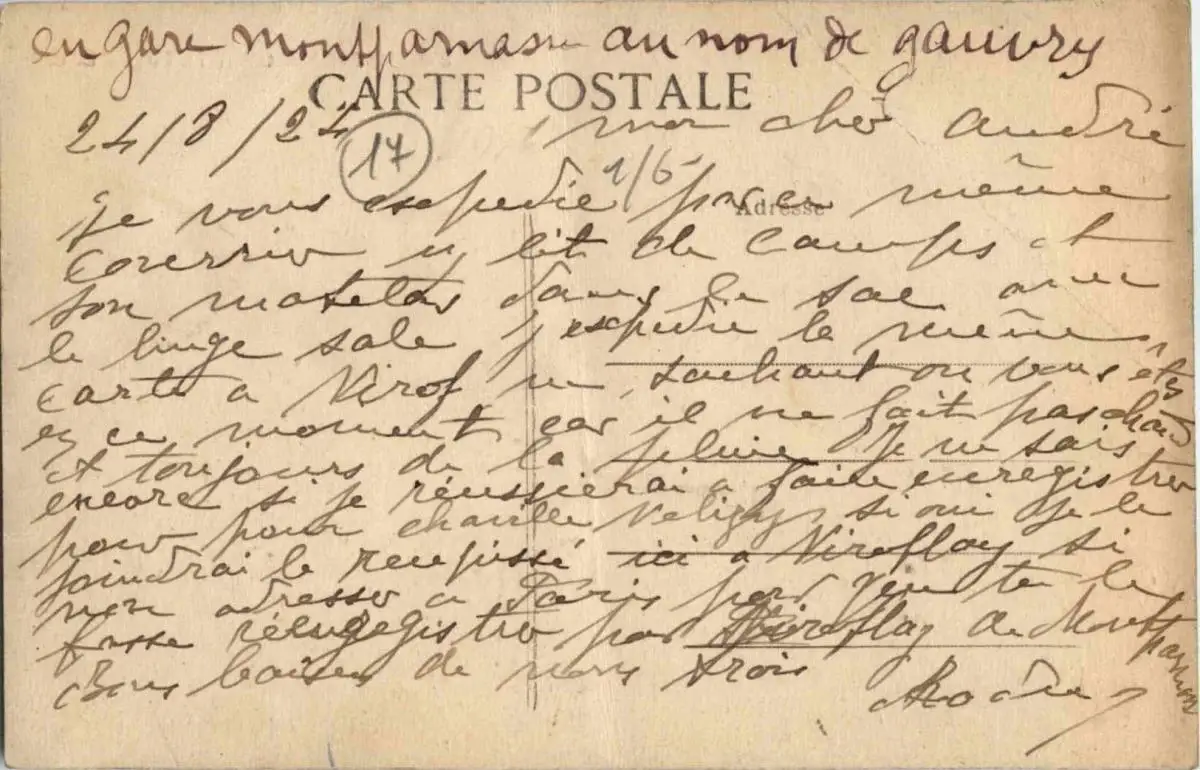 en gare montparnasse au nom de gauvry
CARTE POSTALE
24/8/24 mon cher andré
17
1/6
Adresse
je vous expedie par ce même
courrier un lit de camps et
son matelas dans le sac avec
le linge sale j'expedie la même
carte a Virof ne sachant ou vous êtes
en ce moment car il ne fait pas chaud
et toujours de la pluie Je ne sais
encore si je réussierai a faire enregistrer
pour chaville Veligy si oui je le
joindrai le recepissé ici a Viroflay si
non adresse a Paris pour que te le
fasse réenregistrer par Viroflay de Montparnasse
Bons baisers de nous trois